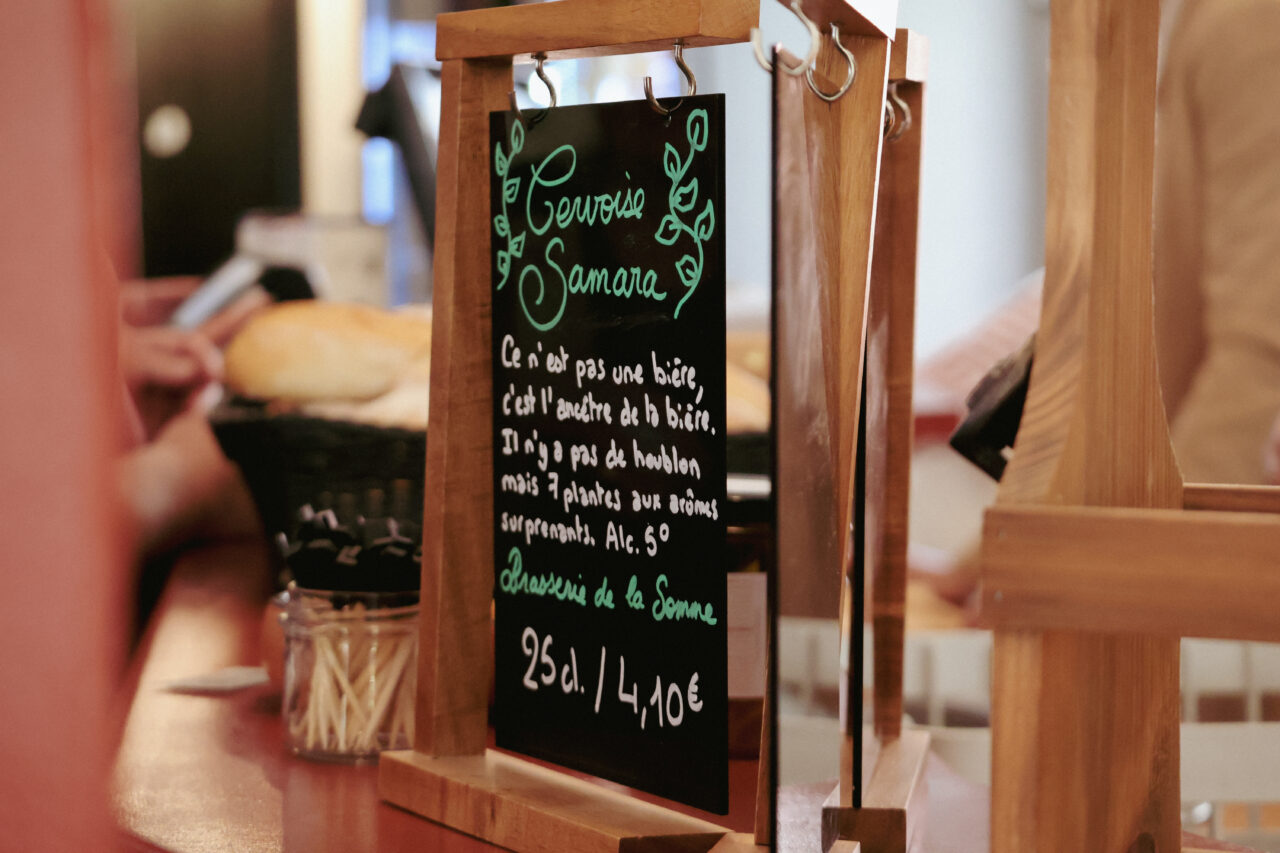 Cervoise
Samara
Ce n'est pas une bière,
c'est l'ancêtre de la bière.
Il n'y a pas de houblon
mais 7 plantes aux arômes
surprenants. Alc. 5°
Brasserie de la Somme
25cl. / 4,10€